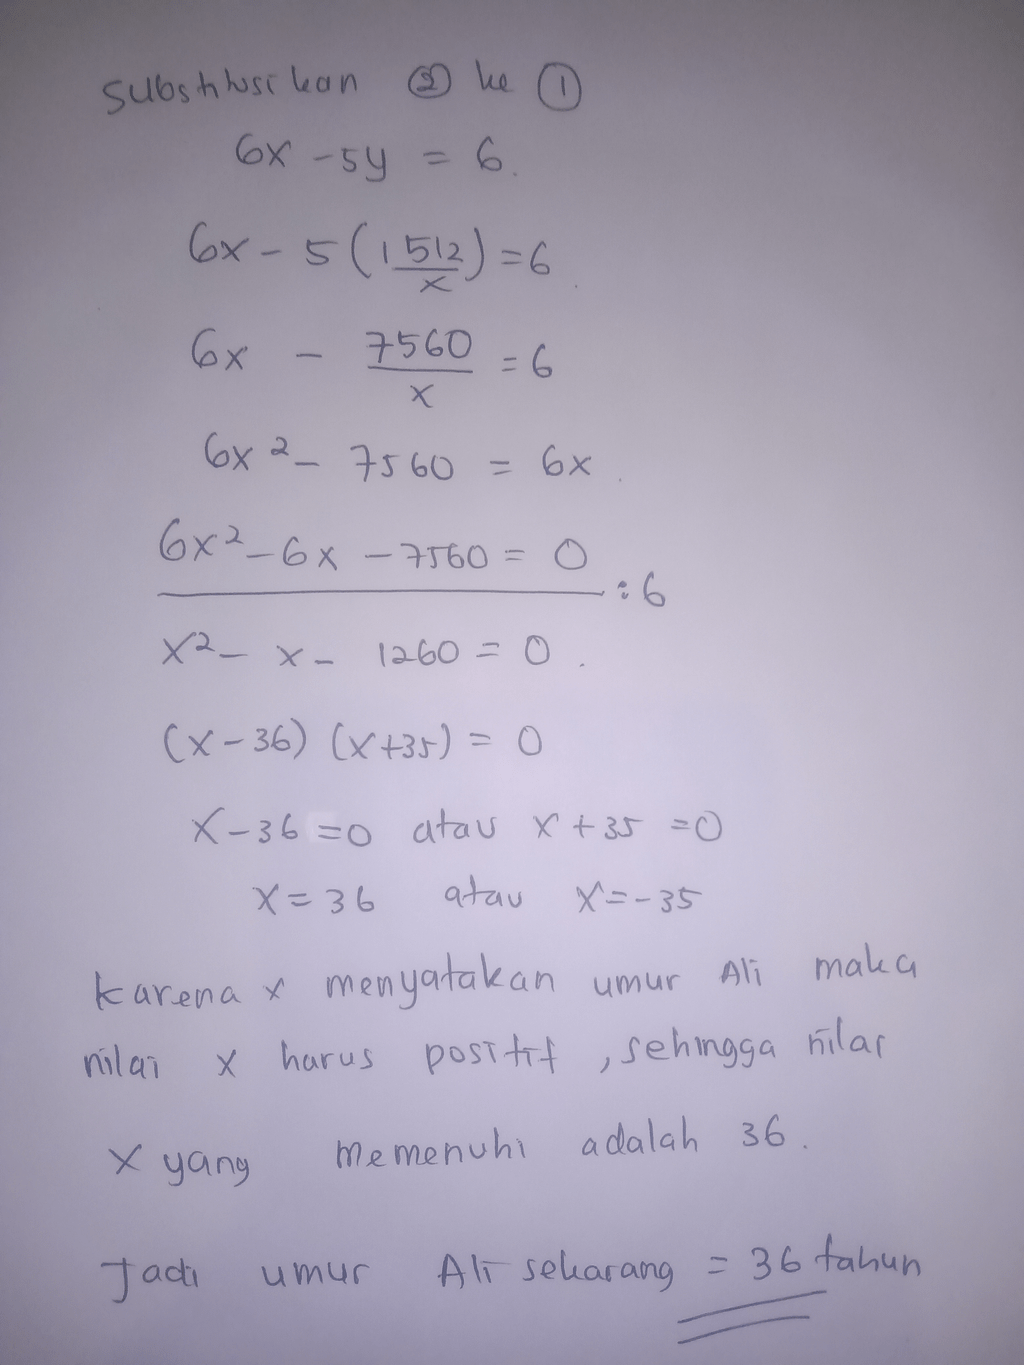 Substitusikan ② ke ①
6x - 5y = 6.
6x - 5 (1512/x) = 6
6x - 7560/x = 6
6x² - 7560 = 6x
6x² - 6x - 7560 = 0 : 6
x² - x - 1260 = 0.
(x - 36) (x + 35) = 0
x - 36 = 0 atau x + 35 = 0
x = 36 atau x = -35
karena x menyatakan umur Ali maka
nilai x harus positif, sehingga nilai
x yang memenuhi adalah 36.
Jadi umur Ali sekarang = 36 tahun